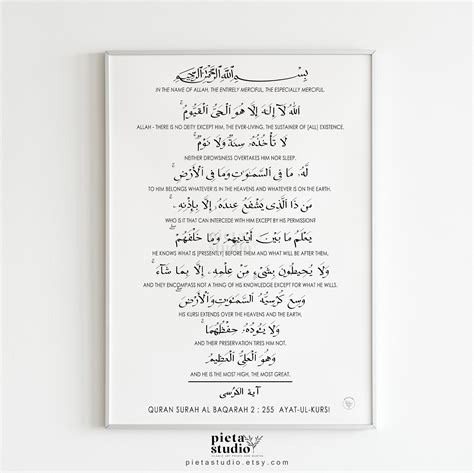 بِسْمِ اللَّهِ الرَّحْمَٰنِ الرَّحِيمِ
IN THE NAME OF ALLAH, THE ENTIRELY MERCIFUL, THE ESPECIALLY MERCIFUL,
اللَّهُ لَا إِلَٰهَ إِلَّا هُوَ الْحَيُّ الْقَيُّومُ ۚ
ALLAH - THERE IS NO DEITY EXCEPT HIM, THE EVER-LIVING, THE SUSTAINER OF [ALL] EXISTENCE.
لَا تَأْخُذُهُ سِنَةٌ وَلَا نَوْمٌ ۚ
NEITHER DROWSINESS OVERTAKES HIM NOR SLEEP.
لَهُ مَا فِي السَّمَاوَاتِ وَمَا فِي الْأَرْضِ ۗ
TO HIM BELONGS WHATEVER IS IN THE HEAVENS AND WHATEVER IS ON THE EARTH.
مَن ذَا الَّذِي يَشْفَعُ عِندَهُ إِلَّا بِإِذْنِهِ ۚ
WHO IS IT THAT CAN INTERCEDE WITH HIM EXCEPT BY HIS PERMISSION?
يَعْلَمُ مَا بَيْنَ أَيْدِيهِمْ وَمَا خَلْفَهُمْ ۖ
HE KNOWS WHAT IS [PRESENTLY] BEFORE THEM AND WHAT WILL BE AFTER THEM,
وَلَا يُحِيطُونَ بِشَيْءٍ مِّنْ عِلْمِهِ إِلَّا بِمَا شَاءَ ۚ
AND THEY ENCOMPASS NOT A THING OF HIS KNOWLEDGE EXCEPT FOR WHAT HE WILLS.
وَسِعَ كُرْسِيُّهُ السَّمَاوَاتِ وَالْأَرْضَ ۖ
HIS KURSI EXTENDS OVER THE HEAVENS AND THE EARTH,
وَلَا يَئُودُهُ حِفْظُهُمَا ۚ
AND THEIR PRESERVATION TIRES HIM NOT.
وَهُوَ الْعَلِيُّ الْعَظِيمُ
AND HE IS THE MOST HIGH, THE MOST GREAT.
آية الكرسي
QURAN SURAH AL BAQARAH 2 : 255 AYAT-UL-KURSI
pieta
studio
pietastudio.etsy.com